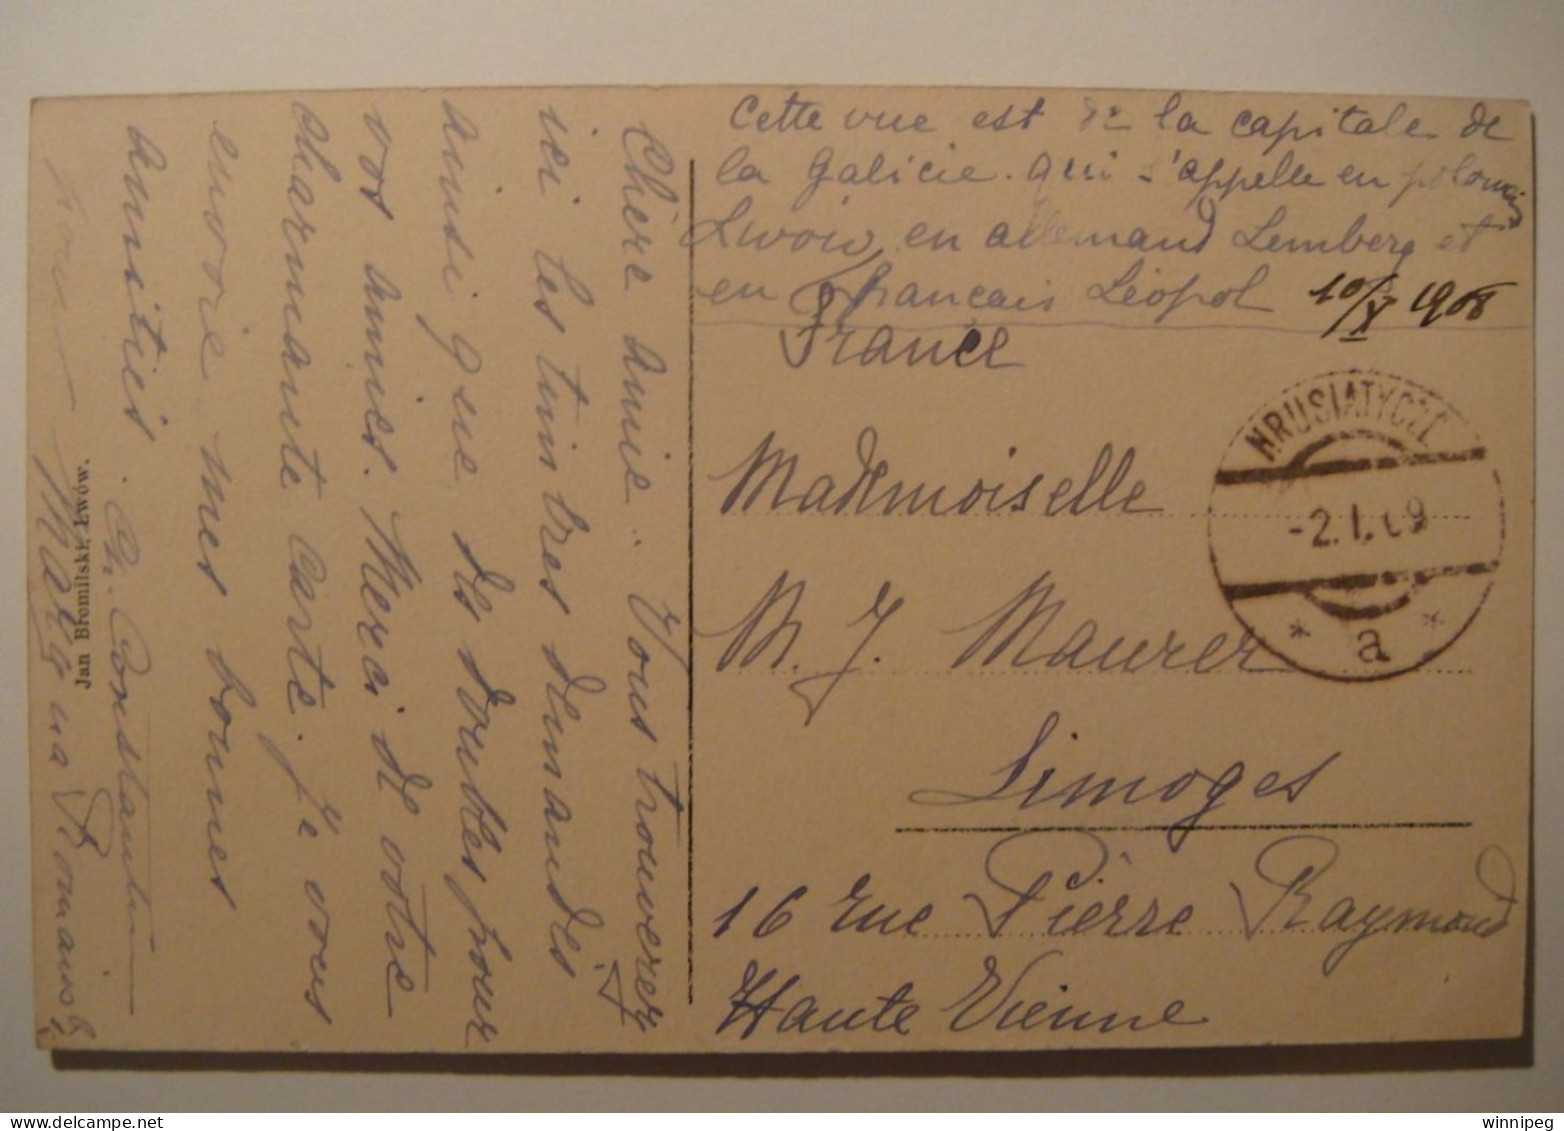 Cette vue est de la capitale de
la Galicie. qui s'appelle en polonais
Lwów, en allemand Lemberg et
en français Léopol 10/X 1908
France
Mademoiselle
M. J. Maurer
Limoges
16 rue Pierre Raymond
Haute Vienne
HRUSIATYCZE
-2.I.09
* a *
Chère amie. Vous trouverez
ici les timbres demandés
ainsi que des doubles pour
vos amies. Merci de votre
charmante carte. Je vous
envoie mes bonnes
amitiés. Constantin
Jan Bromilski, Lwów.
winnipeg